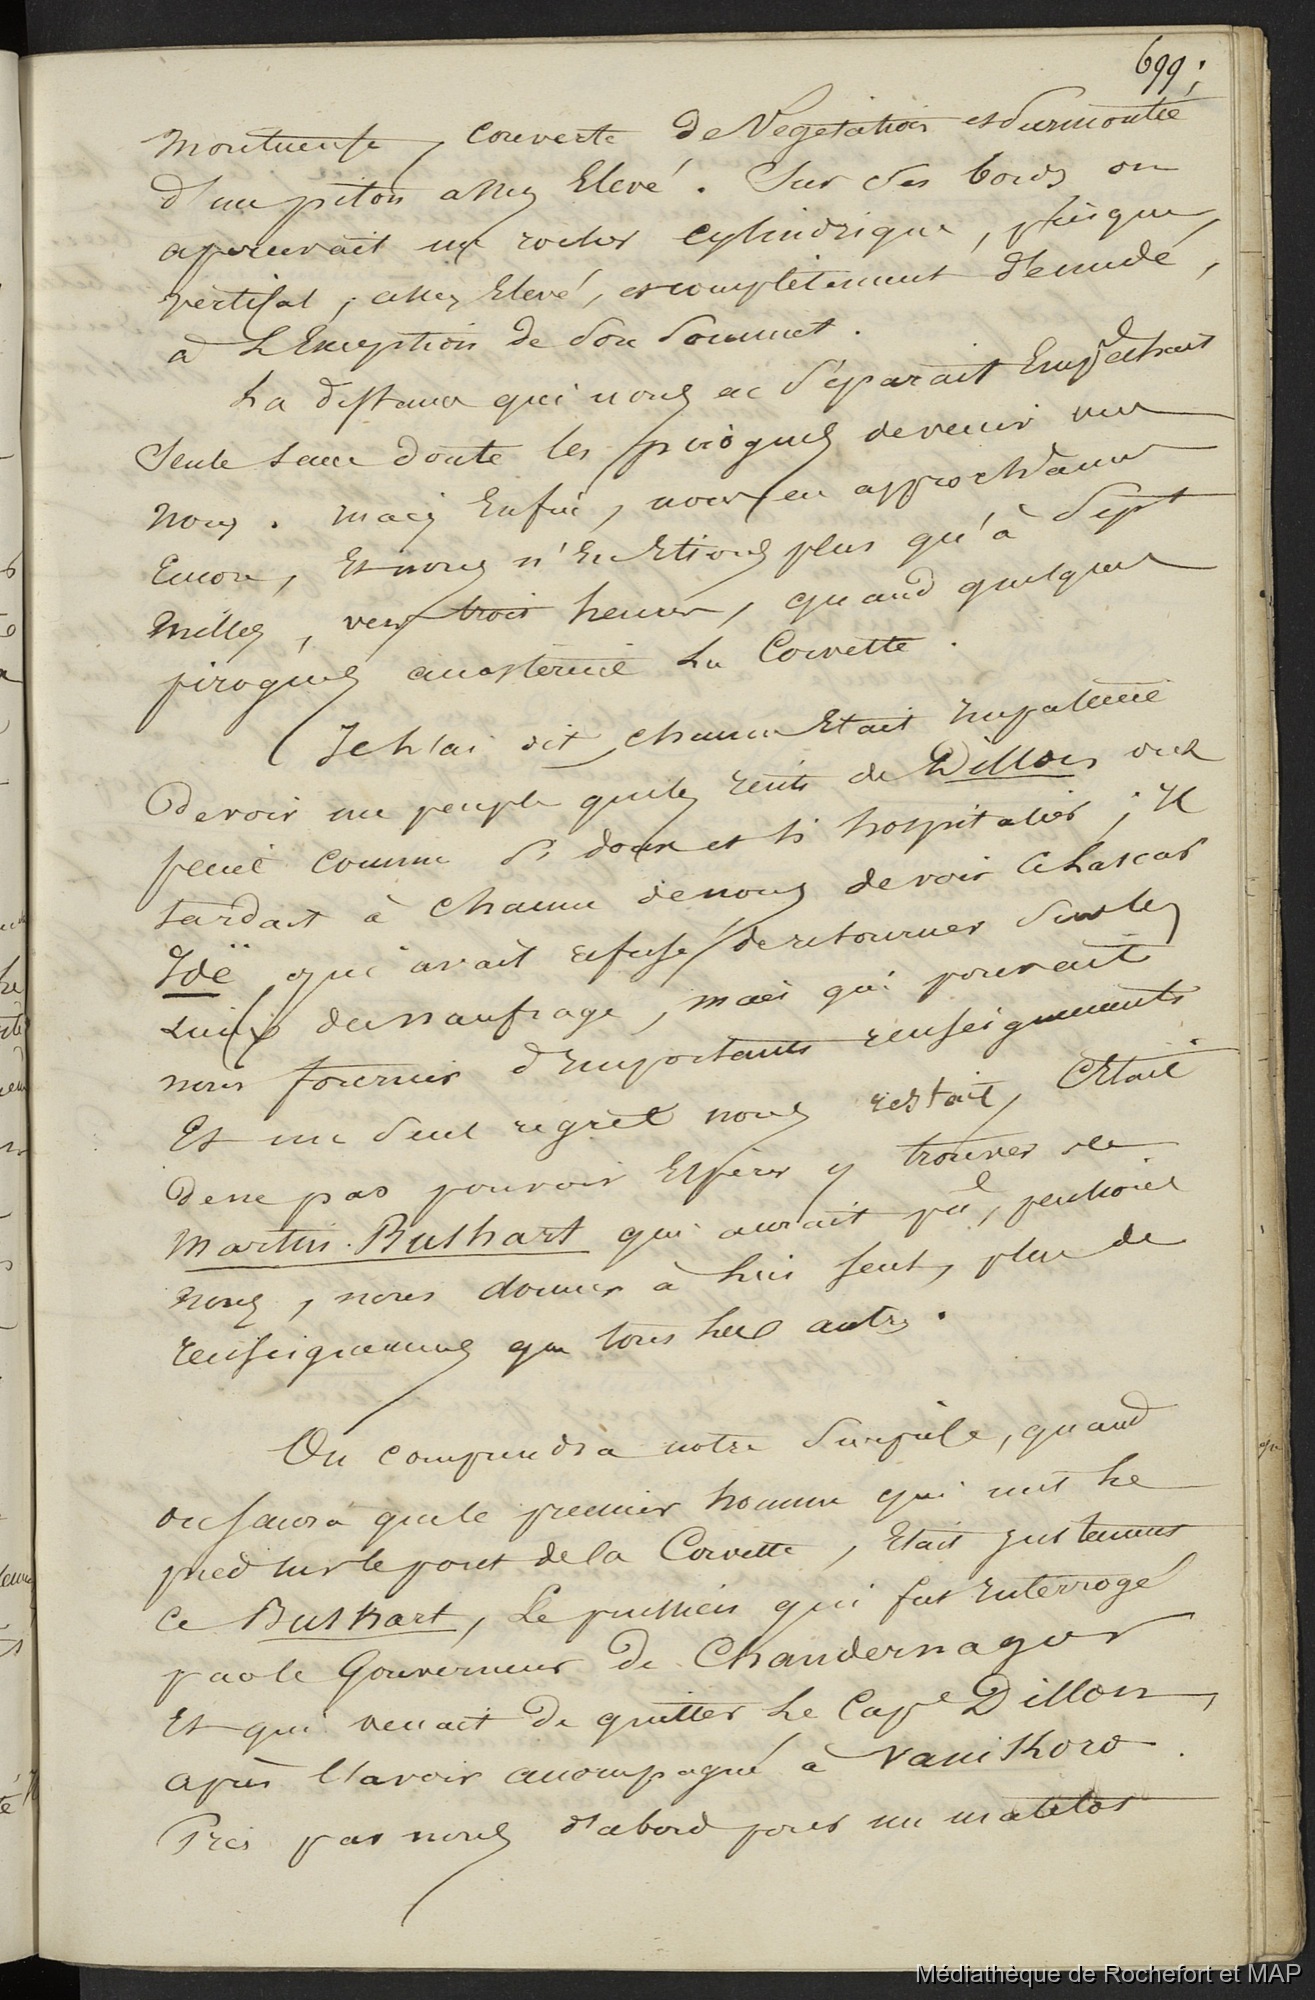 699;
montueuse, couverte de Vegetation et surmontée
d'un piton assez Elevé. Sur ses bords on
apercevait un rocher cylindrique, presque
vertical, assez Elevé, et complètement dénudé,
à L'Exception de son Sommet.
La distance qui nous en séparait Empêchait
Seule sans doute les pirogues de venir vers
nous. mais Enfin, nous en approchâmes
Encore, Et nous n'En Etions plus qu'à Sept
milles, vers trois heures, quand quelques
pirogues accosterent La Corvette.
Je L'ai dit, chacun Etait Impatient
de voir un peuple que les récits de Dillon ont
peint comme si doux et si hospitalier; Il
tardait à chacun de nous de voir ce Lascar
Joë, qui avait refusé de retourner sur les
Lieux du naufrage, mais qui pouvait
nous fournir d'Importants renseignements
Et un seul regret nous restait, C'Etait
de ne pas pouvoir Espérer y trouver ce
Martin Bushart qui aurait pu, pensions
nous, nous donner à lui seul, plus de
renseignements que tous Les autres.
On comprendra notre Surprise, quand
on saura que le premier homme qui mit Le
pied sur le pont de la Corvette, Etait Justement
ce Bushart, Le prussien qui fut Interrogé
par le Gouverneur de Chandernagor
Et qui venait de quitter Le Cap.e Dillon,
après L'avoir accompagné à Vanikoro.
Pris par nous d'abord pour un matelot
Médiathèque de Rochefort et MAP